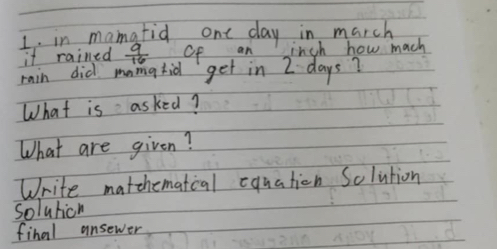 1. in mamatid one day in march
it rained 9/16 of an inch how mach
rain did mamatid get in 2 days?
What is asked?
What are given?
Write mathematical equation Solution
Solution
final answer